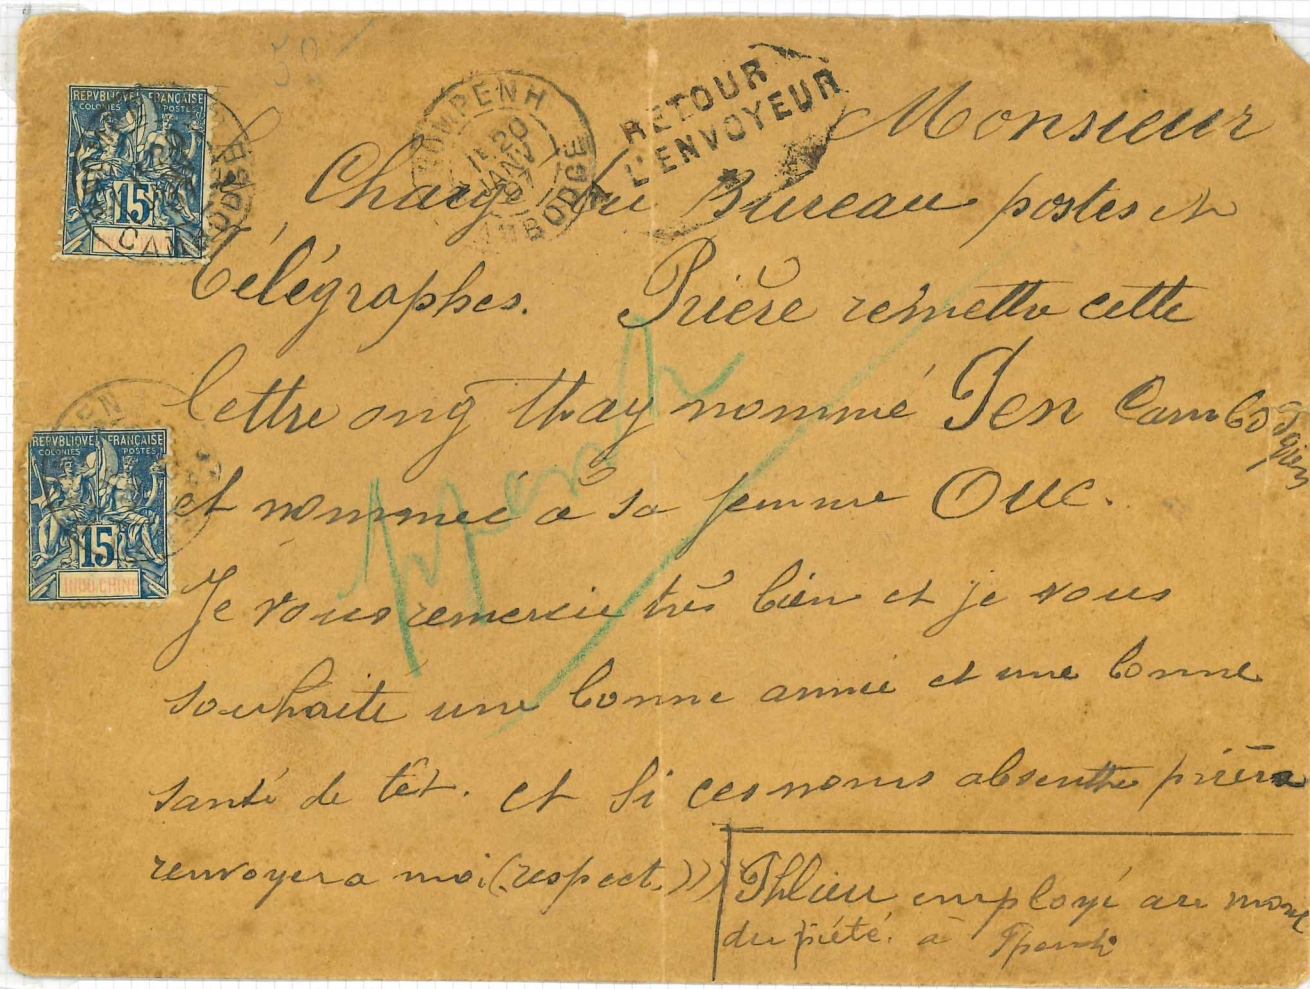 50
REPVBLIQVE FRANÇAISE
COLONIES POSTES
15
CAMBODGE
PENH
JANV
CAMBODGE
RETOUR
A L'ENVOYEUR
Monsieur
Chargé du Bureau postes et
Télégraphes. Prière remettre cette
lettre ong thay nommé Ten Cambodgien
et nommé à sa femme OUC.
Je vous remercie très bien et je vous
souhaite une bonne année et une bonne
santé de têt. et si ces noms absentts prière
renvoyer a moi (respect.))
Thlieu employé au mont
du piété. à Ppenh
Ppenh
REPVBLIQVE FRANÇAISE
COLONIES POSTES
15
INDO-CHINE
PENH